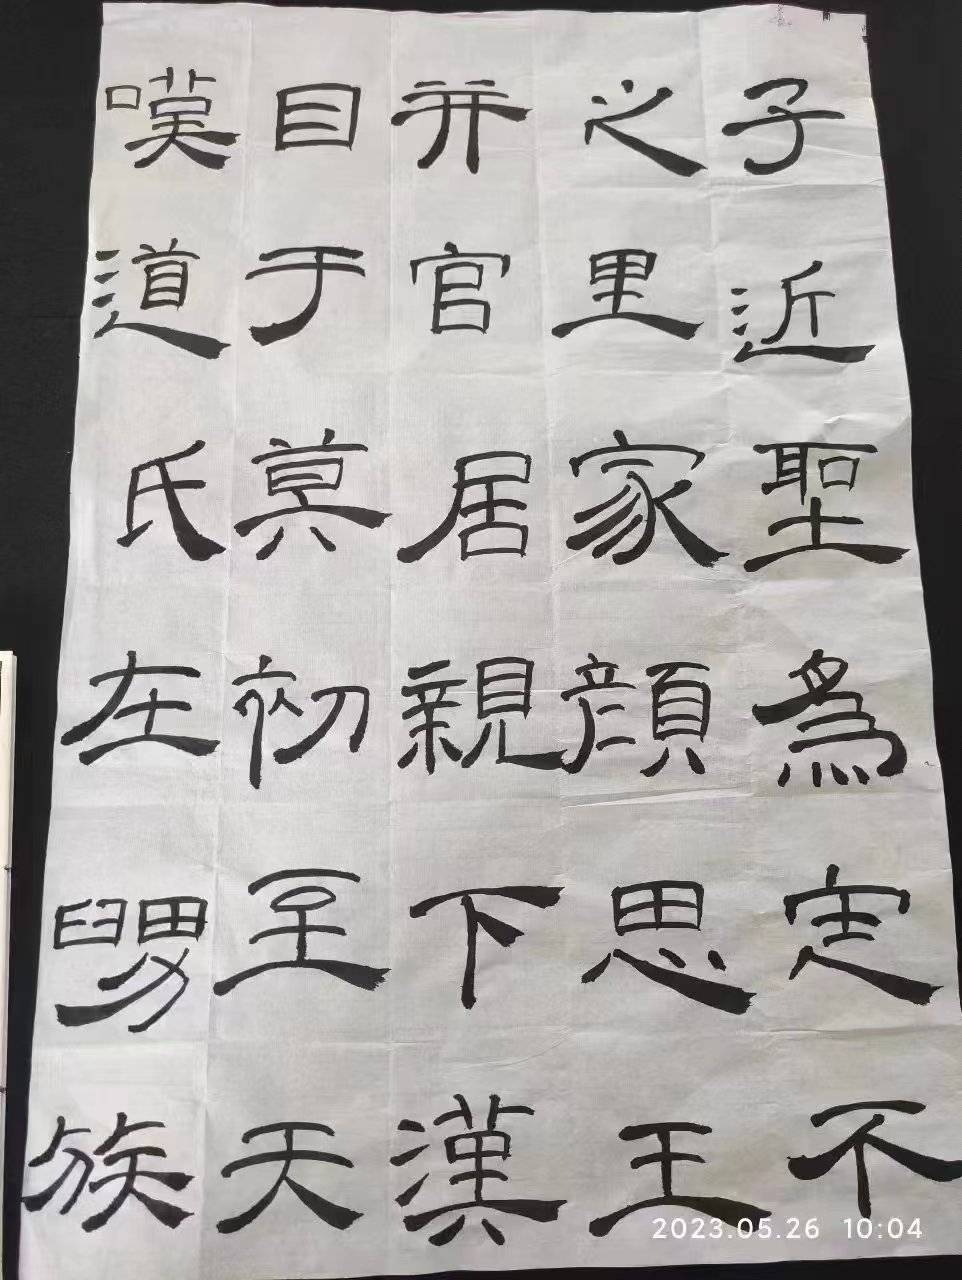 子近聖爲定不
之里家顏思王
并官居親下漢
目于莫初至天
嘆道氏在舅族
2023.05.26 10:04